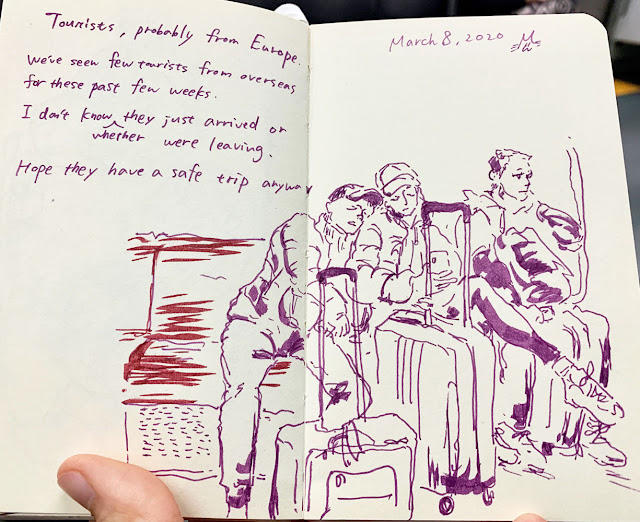 Tourists, probably from Europe.
We've seen few tourists from overseas
for these past few weeks.
I don't know whether they just arrived or
were leaving.
Hope they have a safe trip anyway
March 8, 2020